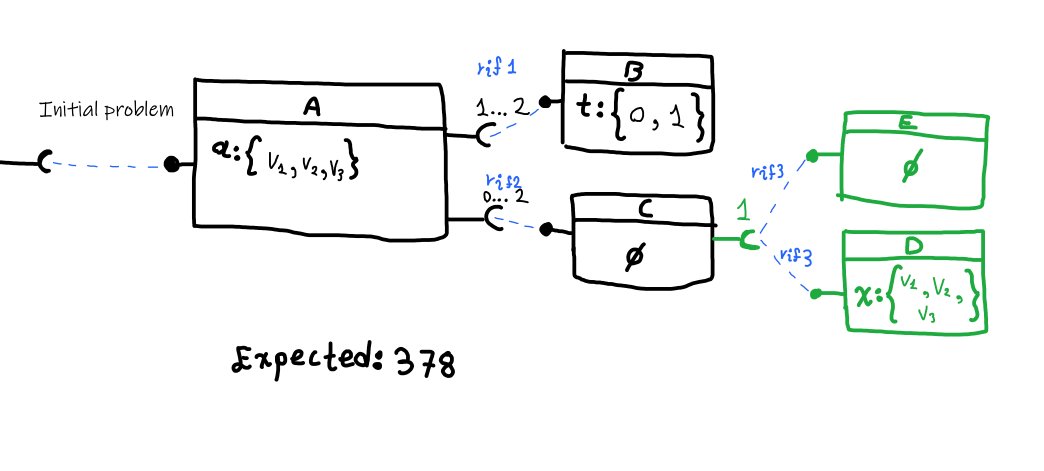 Initial problem
A
a:{V1,V2,V3}
rif1
1...2
B
t:{0,1}
rif2
0...2
C
ϕ
1
rif3
E
ϕ
rif3
D
x:{V1,V2,
V3}
Expected:378